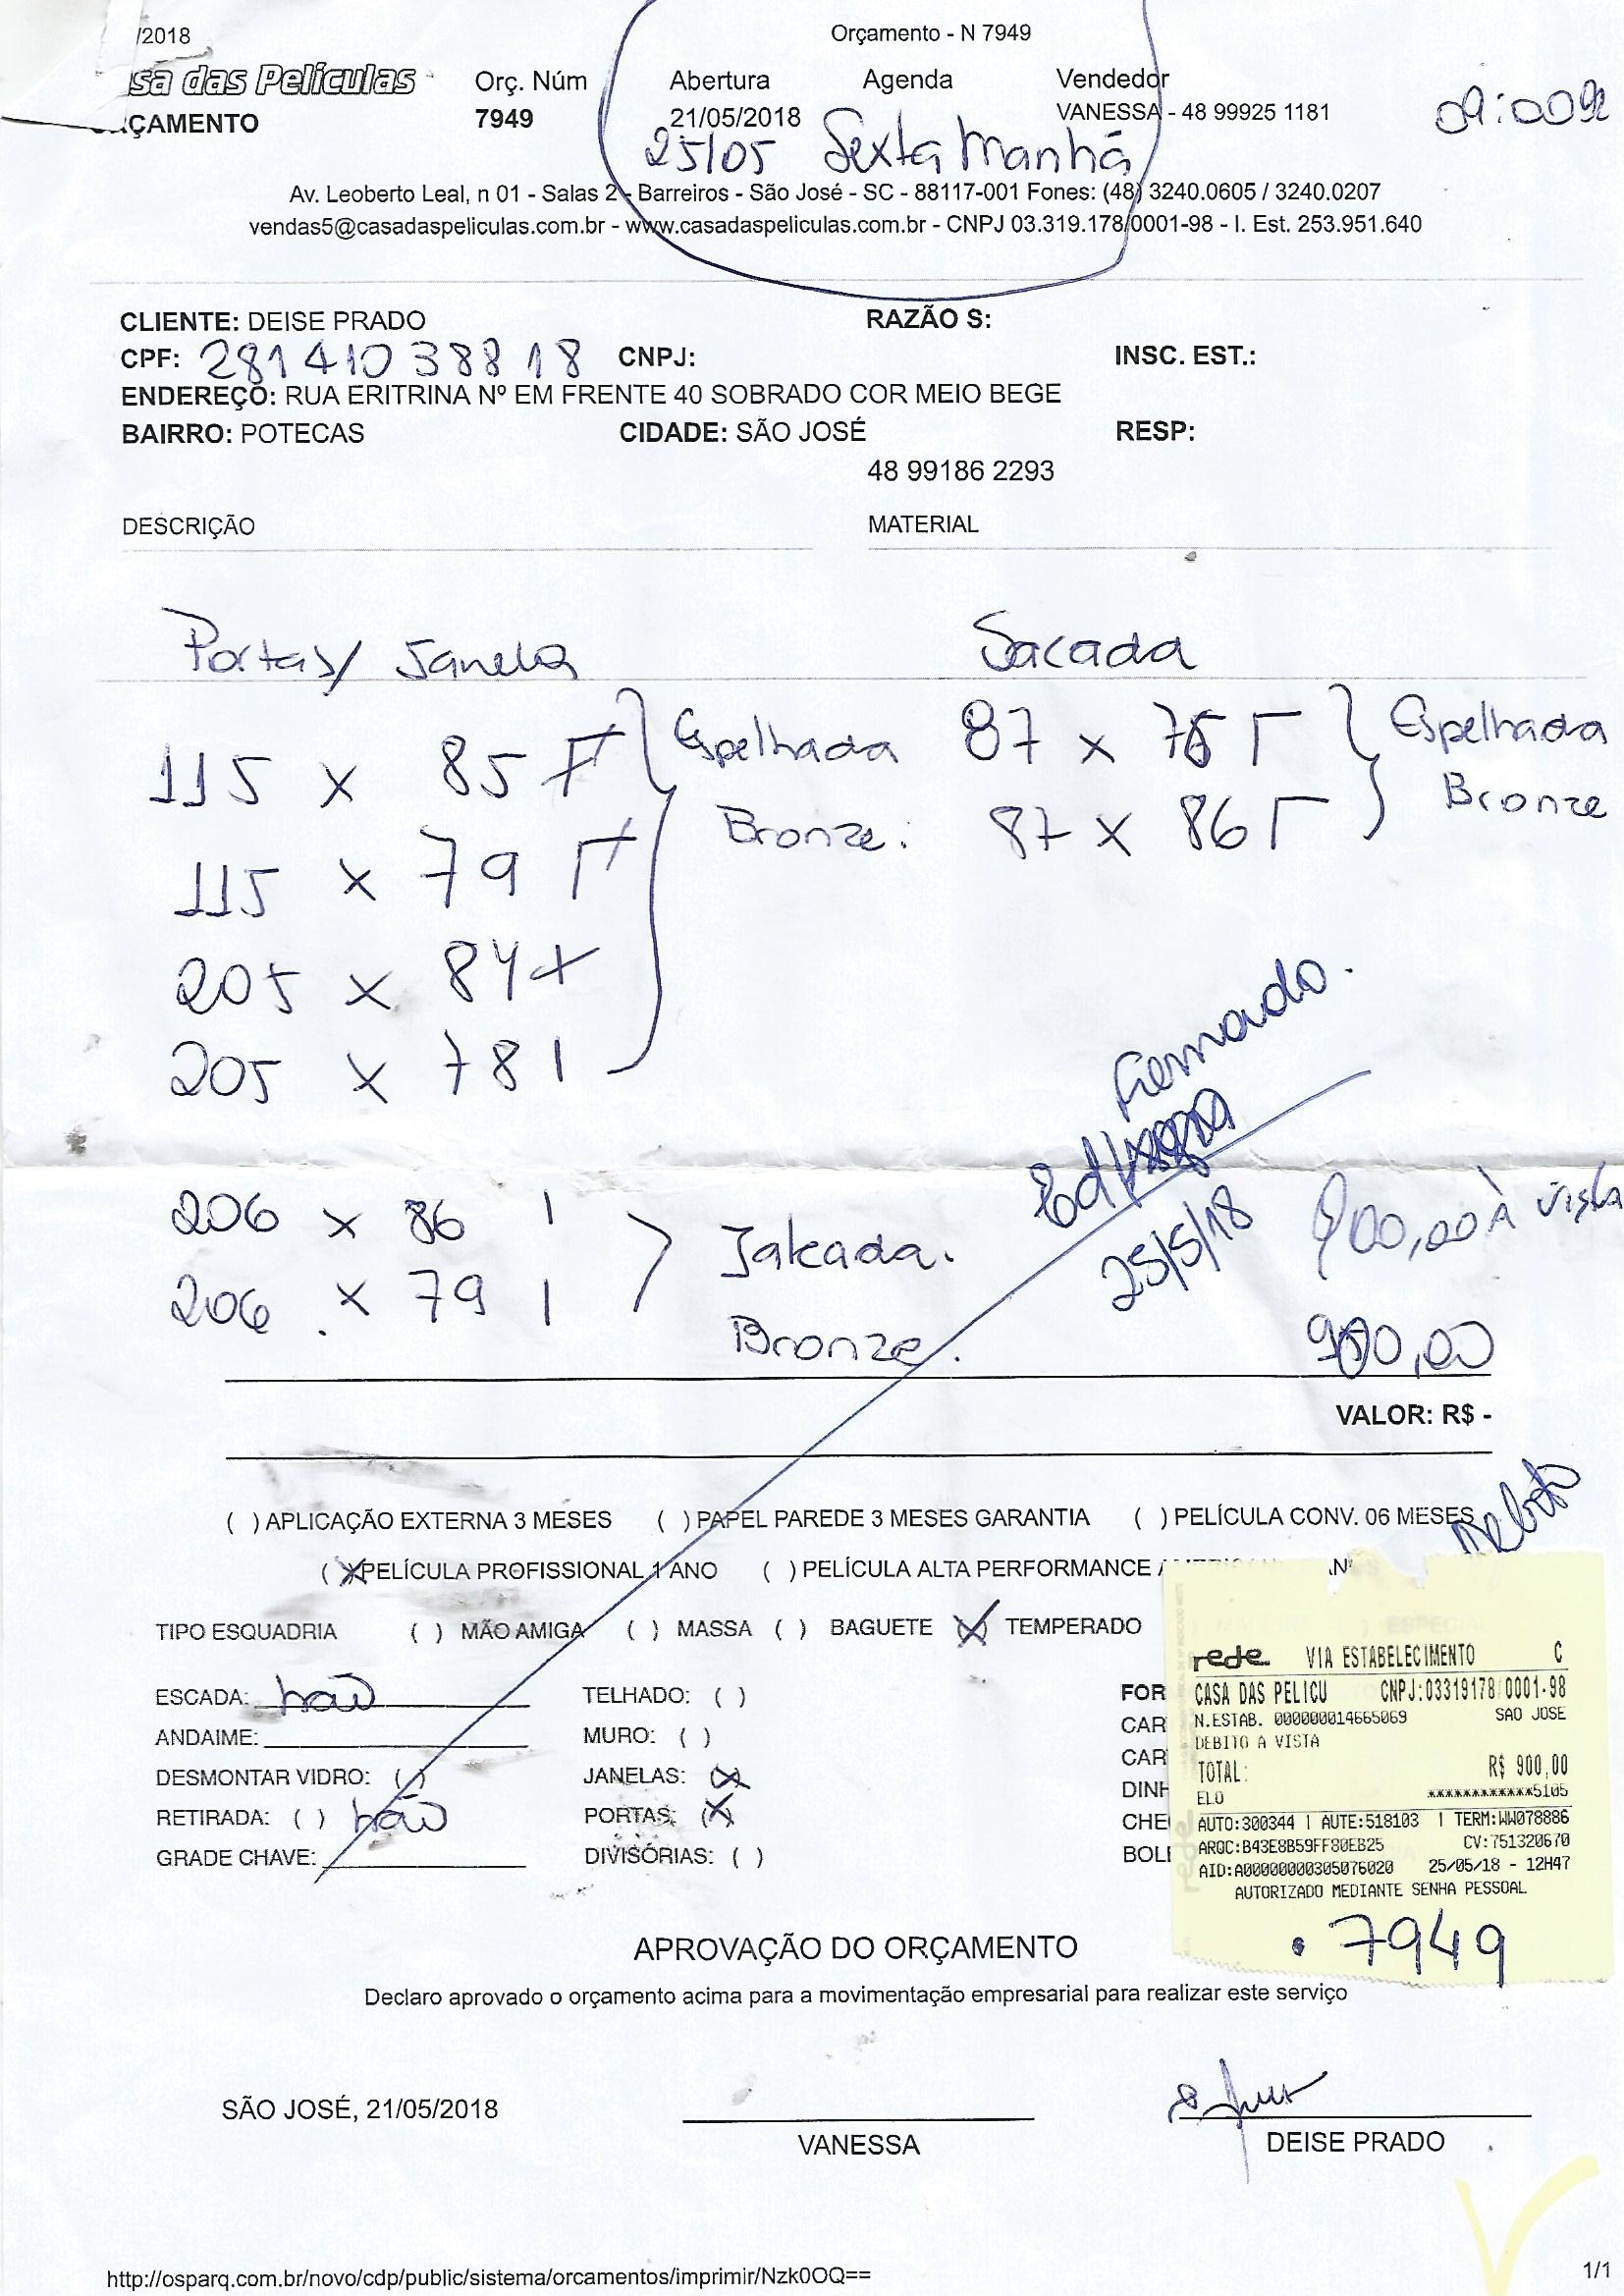 /2018
Orçamento - N 7949
sa das Películas
Orç. Núm Abertura Agenda Vendedor
ÇAMENTO 7949 21/05/2018 VANESSA - 48 99925 1181
25/05 Sexta Manhã
Av. Leoberto Leal, n 01 - Salas 2 - Barreiros - São José - SC - 88117-001 Fones: (48) 3240.0605 / 3240.0207
vendas5@casadaspeliculas.com.br - www.casadaspeliculas.com.br - CNPJ 03.319.178/0001-98 - I. Est. 253.951.640
CLIENTE: DEISE PRADO RAZÃO S:
CPF: 28141038818 CNPJ: INSC. EST.:
ENDEREÇO: RUA ERITRINA Nº EM FRENTE 40 SOBRADO COR MEIO BEGE
BAIRRO: POTECAS CIDADE: SÃO JOSÉ RESP:
48 99186 2293
DESCRIÇÃO MATERIAL
Portas/ Janela Sacada
115 x 85 Espelhada 87 x 75 Espelhada
115 x 79 Bronze: 87 x 86 Bronze
205 x 84
205 x 78
Fernando.
206 x 86 Jateada.
206 x 79 Bronze.
25/5/18
900,00 À vista
900,00
VALOR: R$ -
Debito
( ) APLICAÇÃO EXTERNA 3 MESES ( ) PAPEL PAREDE 3 MESES GARANTIA ( ) PELÍCULA CONV. 06 MESES
(X) PELÍCULA PROFISSIONAL 1 ANO ( ) PELÍCULA ALTA PERFORMANCE
TIPO ESQUADRIA ( ) MÃO AMIGA ( ) MASSA ( ) BAGUETE (X) TEMPERADO
ESCADA: não TELHADO: ( )
ANDAIME: MURO: ( )
DESMONTAR VIDRO: ( ) JANELAS: (X)
RETIRADA: ( ) não PORTAS: (X)
GRADE CHAVE: DIVISÓRIAS: ( )
FOR
CAR
CAR
DINH
CHE
BOL
rede VIA ESTABELECIMENTO C
CASA DAS PELICU CNPJ:03319178/0001-98
N.ESTAB. 000000014665069 SAO JOSE
DEBITO A VISTA
TOTAL: R$ 900,00
ELO ************5105
AUTO:300344 | AUTE:518103 | TERM:WW078886
ARQC:B43E8B59FF80EB25 CV:751320670
AID:A0000000305076020 25/05/18 - 12H47
AUTORIZADO MEDIANTE SENHA PESSOAL
7949
APROVAÇÃO DO ORÇAMENTO
Declaro aprovado o orçamento acima para a movimentação empresarial para realizar este serviço
SÃO JOSÉ, 21/05/2018
VANESSA DEISE PRADO
http://osparq.com.br/novo/cdp/public/sistema/orcamentos/imprimir/Nzk0OQ== 1/1